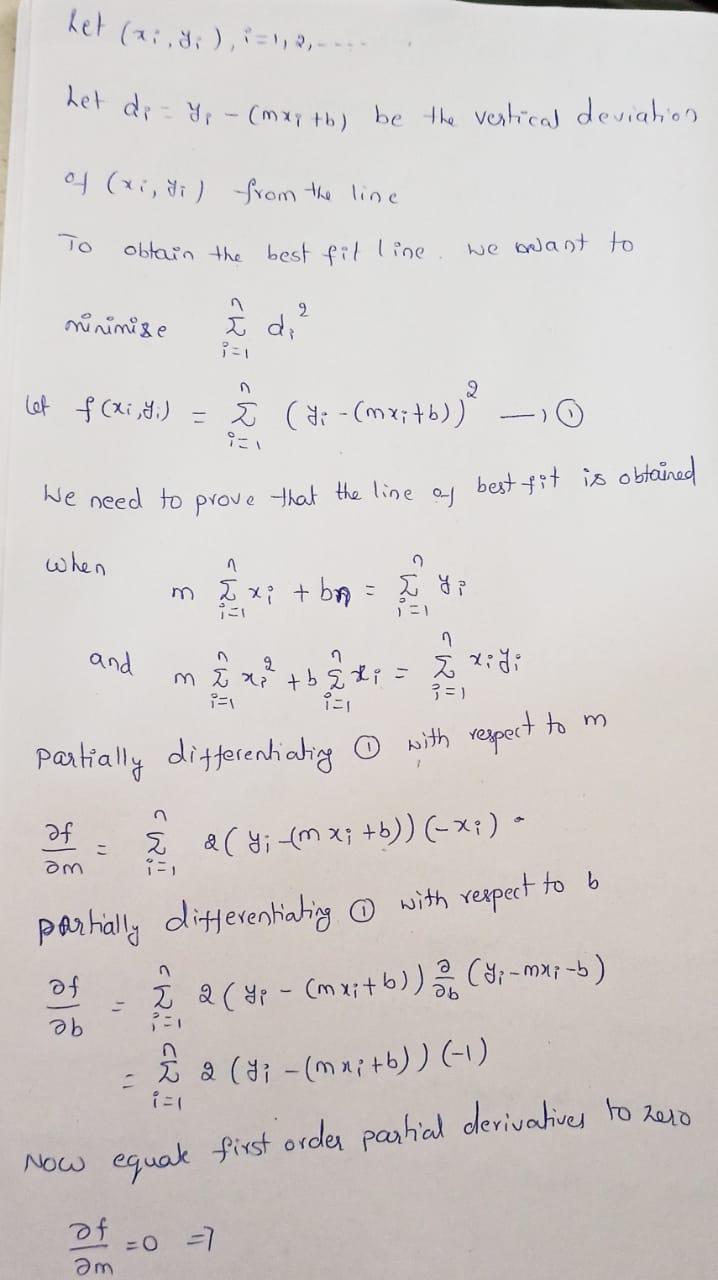 Let (xᵢ, yᵢ), i=1, 2, -----
Let dᵢ = yᵢ - (mxᵢ + b) be the vertical deviation
of (xᵢ, yᵢ) from the line
To obtain the best fit line. we want to
minimise ∑ᵢ₌₁ⁿ dᵢ²
Let f(xᵢ, yᵢ) = ∑ᵢ₌₁ⁿ (yᵢ - (mxᵢ + b))² → ①
We need to prove that the line of best fit is obtained
when m ∑ᵢ₌₁ⁿ xᵢ + bn = ∑ᵢ₌₁ⁿ yᵢ
and m ∑ᵢ₌₁ⁿ xᵢ² + b ∑ᵢ₌₁ⁿ xᵢ = ∑ᵢ₌₁ⁿ xᵢyᵢ
partially differentiating ① with respect to m
∂f/∂m = ∑ᵢ₌₁ⁿ 2(yᵢ - (mxᵢ + b))(-xᵢ)
partially differentiating ① with respect to b
∂f/∂b = ∑ᵢ₌₁ⁿ 2(yᵢ - (mxᵢ + b)) ∂/∂b (yᵢ - mxᵢ - b)
= ∑ᵢ₌₁ⁿ 2(yᵢ - (mxᵢ + b))(-1)
Now equate first order partial derivatives to zero
∂f/∂m = 0 ⇒